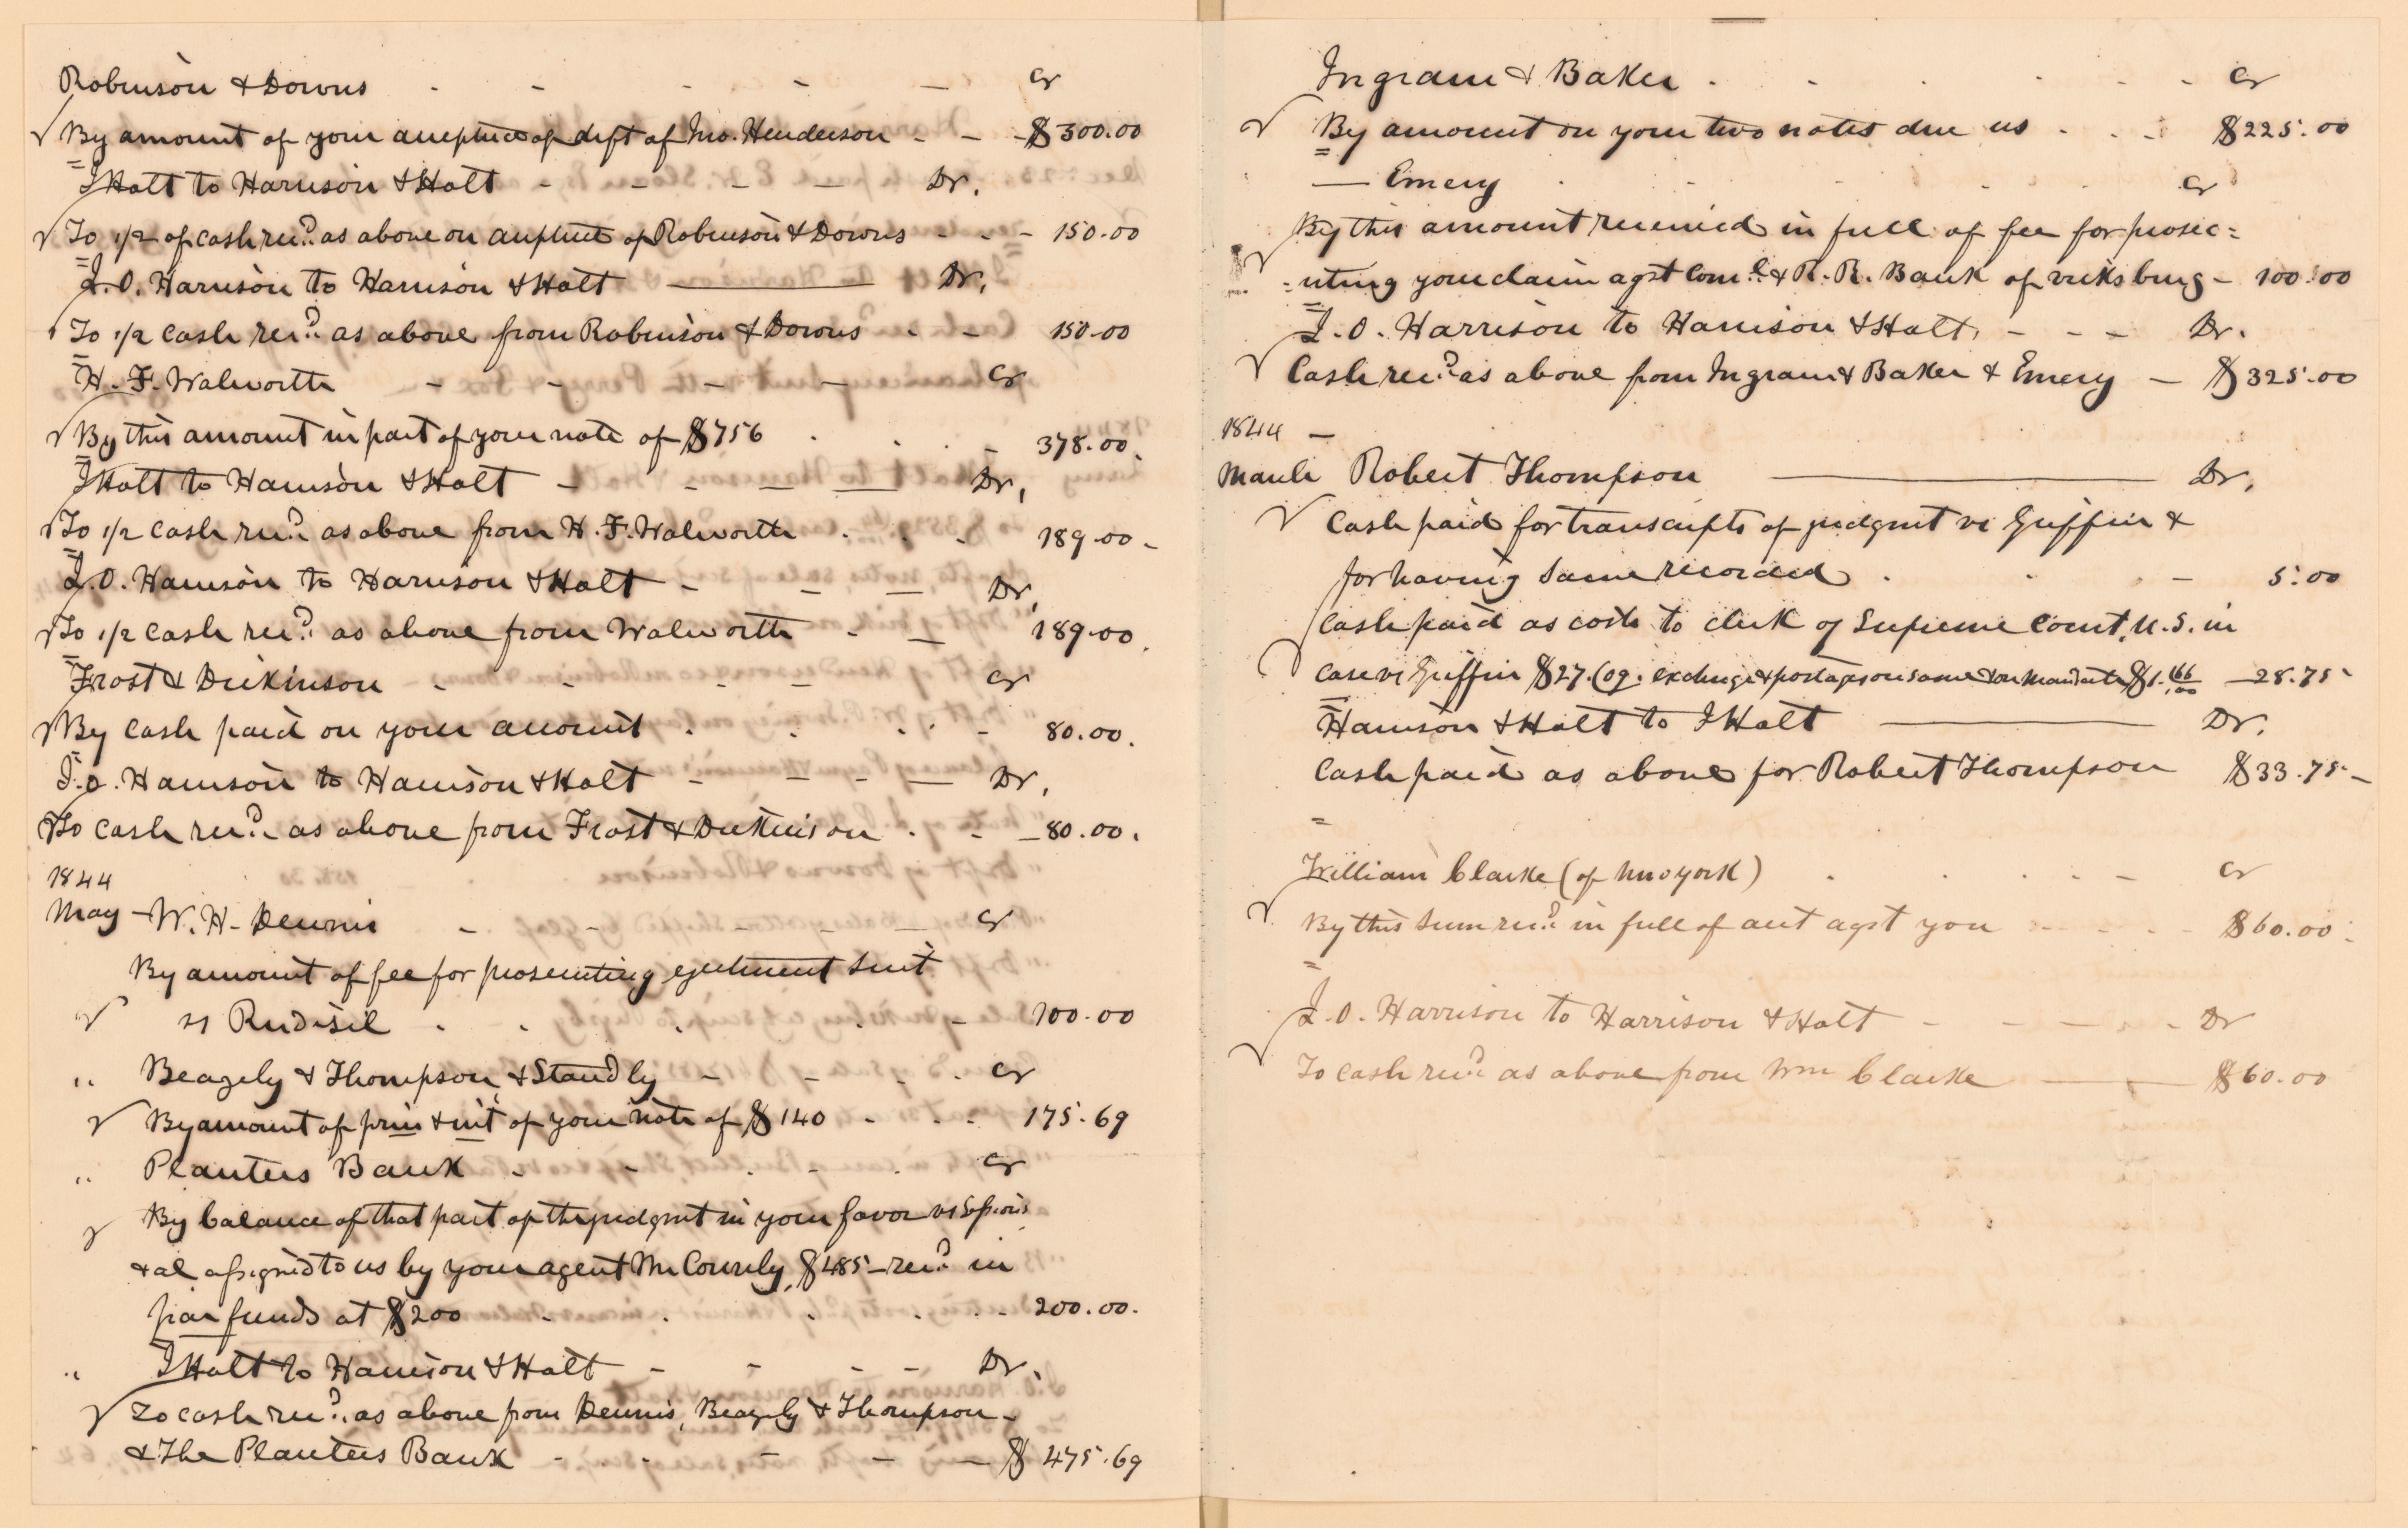 Robinson & Downs - - - - — Cr
By amount of your acceptance of dft of Jno. Henderson - - - $300.00
J Holt to Harrison & Holt - - - — Dr.
To 1/2 of cash recd. as above on acceptance of Robinson & Downs - - - 150.00
J. O. Harrison to Harrison & Holt — Dr.
To 1/2 cash recd. as above from Robinson & Downs - - 150.00
H. F. Walworth - - - - Cr
By this amount in part of your note of $756 . . . - 378.00.
J Holt to Harrison & Holt - - — — Dr,
To 1/2 cash recd. as above from H. F. Walworth . . - 189.00 -
J. O. Harrison to Harrison & Holt - - — Dr,
To 1/2 cash recd. as above from Walworth - — 189.00.
Frost & Dickinson - - - - Cr
By cash paid on your account . . . - 80.00.
J. O. Harrison to Harrison & Holt - - - — Dr,
To cash recd. as above from Frost & Dickinson . - - 80.00.
1844
May - W. H. Dennis - - - - — Cr
By amount of fee for prosecuting ejectment suit
vs Rudisil . . . . - 100.00
" Beazely & Thompson & Standly - - . . Cr
By amount of prin & int of your note of $140 - . - 175.69
" Planters Bank - - . - . Cr
By balance of that part of the judgmt in your favor vs
& al assigned to us by your agent $485 - recd. in
par funds at $200 - . . . - 200.00.
" J Holt to Harrison & Holt - - - - Dr.
To cash recd. as above from Dennis, Beazely & Thompson -
& The Planters Bank - - — - — $475.69
Ingram & Baker . . . . - - Cr
By amount on your two notes due us . . - $225.00
— Emery . . . . Cr
By this amount received in full of fee for prosec=
=uting your claim agst Coml. & R. R. Bank of vicksburg - 100.00
J. O. Harrison to Harrison & Holt, - - - Dr.
Cash recd. as above from Ingram & Baker & Emery - $325.00
1844 —
March Robert Thompson — Dr,
Cash paid for transcripts of judgmt vs Griffin &
for having same recorded . . . - 5.00
Cash paid as costs to clerk of Supreme Court, U. S. in
case vs Griffin $27.09. exchange & postages on same & on Mandate $1.66/100 — 28.75
Harrison & Holt to J Holt — Dr,
Cash paid as above for Robert Thompson $33.75 -
William Clarke (of New york) . . . . - Cr
By this sum recd. in full of act agst you - - - - $60.00.
J. O. Harrison to Harrison & Holt - - — - - Dr
To cash recd. as above from Wm Clarke — — $60.00